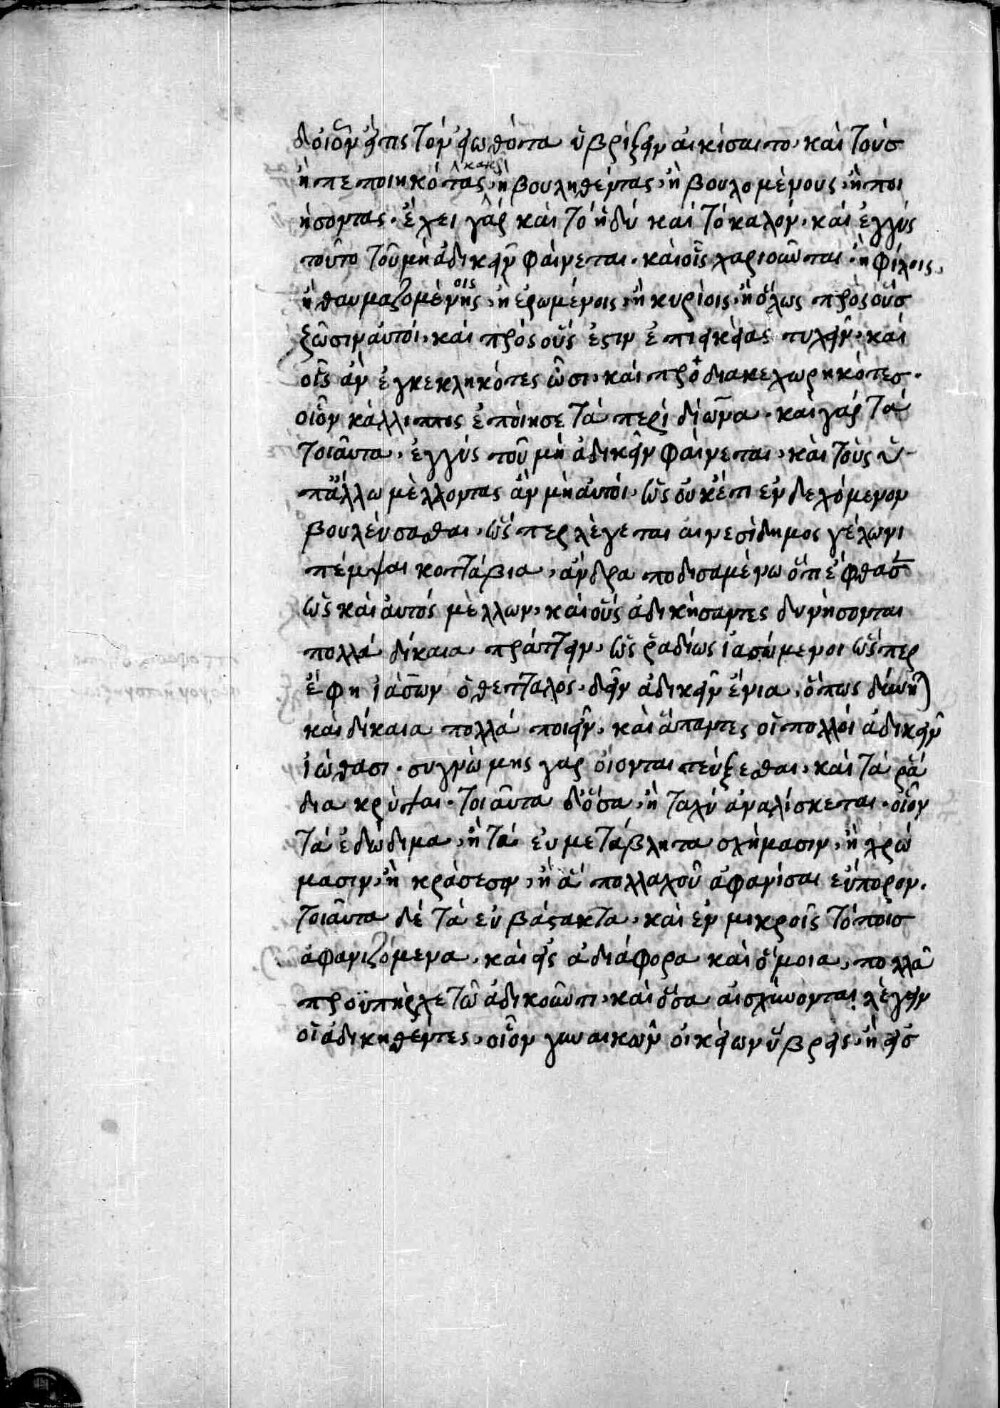 δ οἷον εἴ τις τὸν εἰωθότα ὑβρίζειν αἰκίσαιτο· καὶ τοὺς
ἢ πεποιηκότας κακῶς, ἢ βουληθέντας, ἢ βουλομένους, ἢ ποι
ήσοντας· ἔχει γὰρ καὶ τὸ ἡδὺ καὶ τὸ καλόν, καὶ ἐγγὺς
τοῦτο τοῦ μὴ ἀδικεῖν φαίνεται. καὶ οἷς χαριοῦνται ἢ φίλοις,
ἢ θαυμαζομένοις, ἢ ἐρωμένοις, ἢ κυρίοις, ἢ ὅλως πρὸς οὓς
ζῶσιν αὐτοί, καὶ πρὸς οὕς ἐστιν ἐπιεικείας τυχεῖν, καὶ
οἷς ἂν ἐγκεκληκότες ὦσι, καὶ προδιακεχωρηκότες,
οἷον κάλλιππος ἐποίησε τὰ περὶ δίωνα, καὶ γὰρ τὰ
τοιαῦτα, ἐγγὺς τοῦ μὴ ἀδικεῖν φαίνεται, καὶ τοὺς ὑ
π' ἄλλω μέλλοντας ἂν μὴ αὐτοί, ὡς οὐκ έτι ἐνδεχόμενον
βουλεύσασθαι, ὥσπερ λέγεται αἰνεσίδημος γέλωνι
πέμψαι κοττάβια, ἀνδραποδισαμένω ὅτι ἔφθασεν
ὡς καὶ αὐτὸς μέλλων, καὶ οὓς ἀδικήσαντες δυνήσονται
πολλὰ δίκαια πράττειν, ὡς ῥαδίως ἰασόμενοι ὥσπερ
ἔφη ἰάσων ὁ θετταλός, δεῖν ἀδικεῖν ἔνια, ὅπως δύνηται
καὶ δίκαια πολλὰ ποιεῖν, καὶ ἃ πάντες οἱ πολλοὶ ἀδικεῖν
εἰώθασι· συγνώμης γὰρ οἴονται τεύξεσθαι, καὶ τὰ ῥά
δια κρύψαι· τοιαῦτα δ' ὅσα, ἢ ταχὺ ἀναλίσκεται, οἷον
τὰ ἐδώδιμα, ἢ τὰ εὐμετάβλητα σχήμασιν, ἢ χρώ
μασιν, ἢ κράσεσιν, ἢ ἃ πολλαχοῦ ἀφανίσαι εὔπορον.
τοιαῦτα δὲ τὰ εὐβάστακτα, καὶ ἐν μικροῖς τόποις
ἀφανιζόμενα, καὶ οἷς ἀδιάφορα καὶ ὅμοια, πολλὰ
προϋπῆρχε τῶ ἀδικοῦντι, καὶ ὅσα αἰσχύνονται λέγειν
οἱ ἀδικηθέντες, οἷον γυναικῶν οἰκείων ὕβρεις, ἢ εἰς